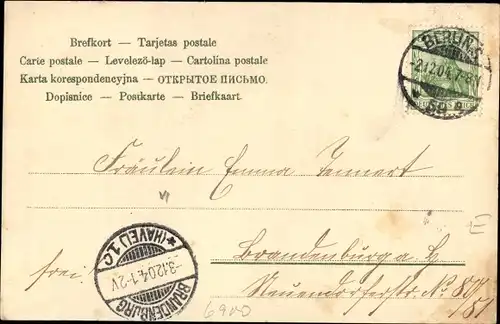 Brefkort — Tarjetas postale
Carte postale — Levelező-lap — Cartolina postale
Karta korespondencyjna — ОТКРЫТОЕ ПИСЬМО.
Dopisnice — Postkarte — Briefkaart.
BERLIN S
-2.12.04. 7-8
59
Fräulein Emma
Brandenburg a. H.
frei!
(HAVEL) 1.C
-3.12.04. 1-2V
BRANDENBURG
6900
E